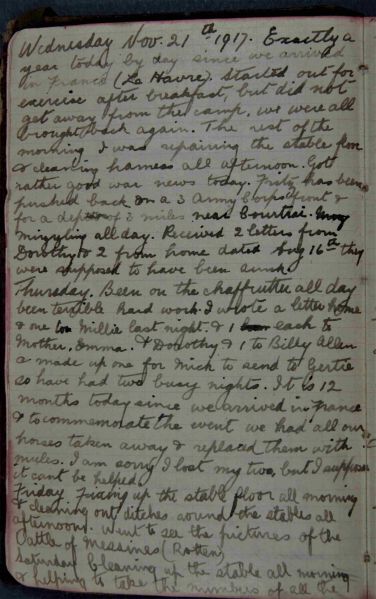 Wednesday Nov. 21th 1917. Exactly a
year today by day since we arrived
in France (La Havre). started out for
exercise after breakfast, but did not
get away from the camp, we were all
brought back again. The rest of the
morning I was repairing the stable floor
& cleaning harness all afternoon. Got
rather good war news today. Fritz has been
pushed back on a 3 Army Corps front &
for a depth of 3 miles near Courtrai.
all day. Received 2 letters from
Dorothy & 2 from home dated Aug 16th they
were supposed to have been sunk
Thursday. Been on the chaffcutter all day
been terrible hard work. I wrote a letter home
& one to Millie last night. & 1 each to
Mother, Emma. & Dorothy & 1 to Billy Allen
& made up one for Mick to send to Gertie
so have had two busy nights. It is 12
months today since we arrived in France
& to commemorate the event we had all our
horses taken away & replaced them with
mules. I am sorry I lost my two, but I suppose
it cant be helped
Friday. Fixing up the stable floor all morning
& cleaning out ditches around the stables all
afternoon. Went to see the pictures of the
Battle of Messines (Rotten)
Saturday Cleaning up the stable all morning
& helping to take the numbers of all the